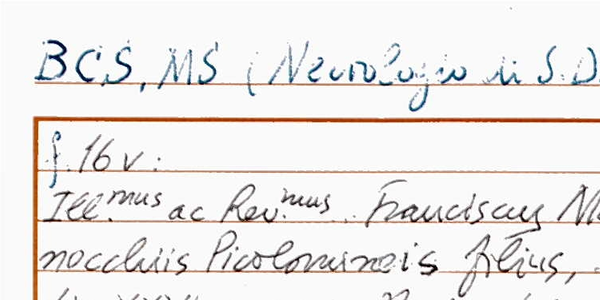 BCS, MS (Necrologio di S.D.
f. 16 v:
Ill.mus ac Rev.mus. Franciscus
nocchiis Picolomineis filius,